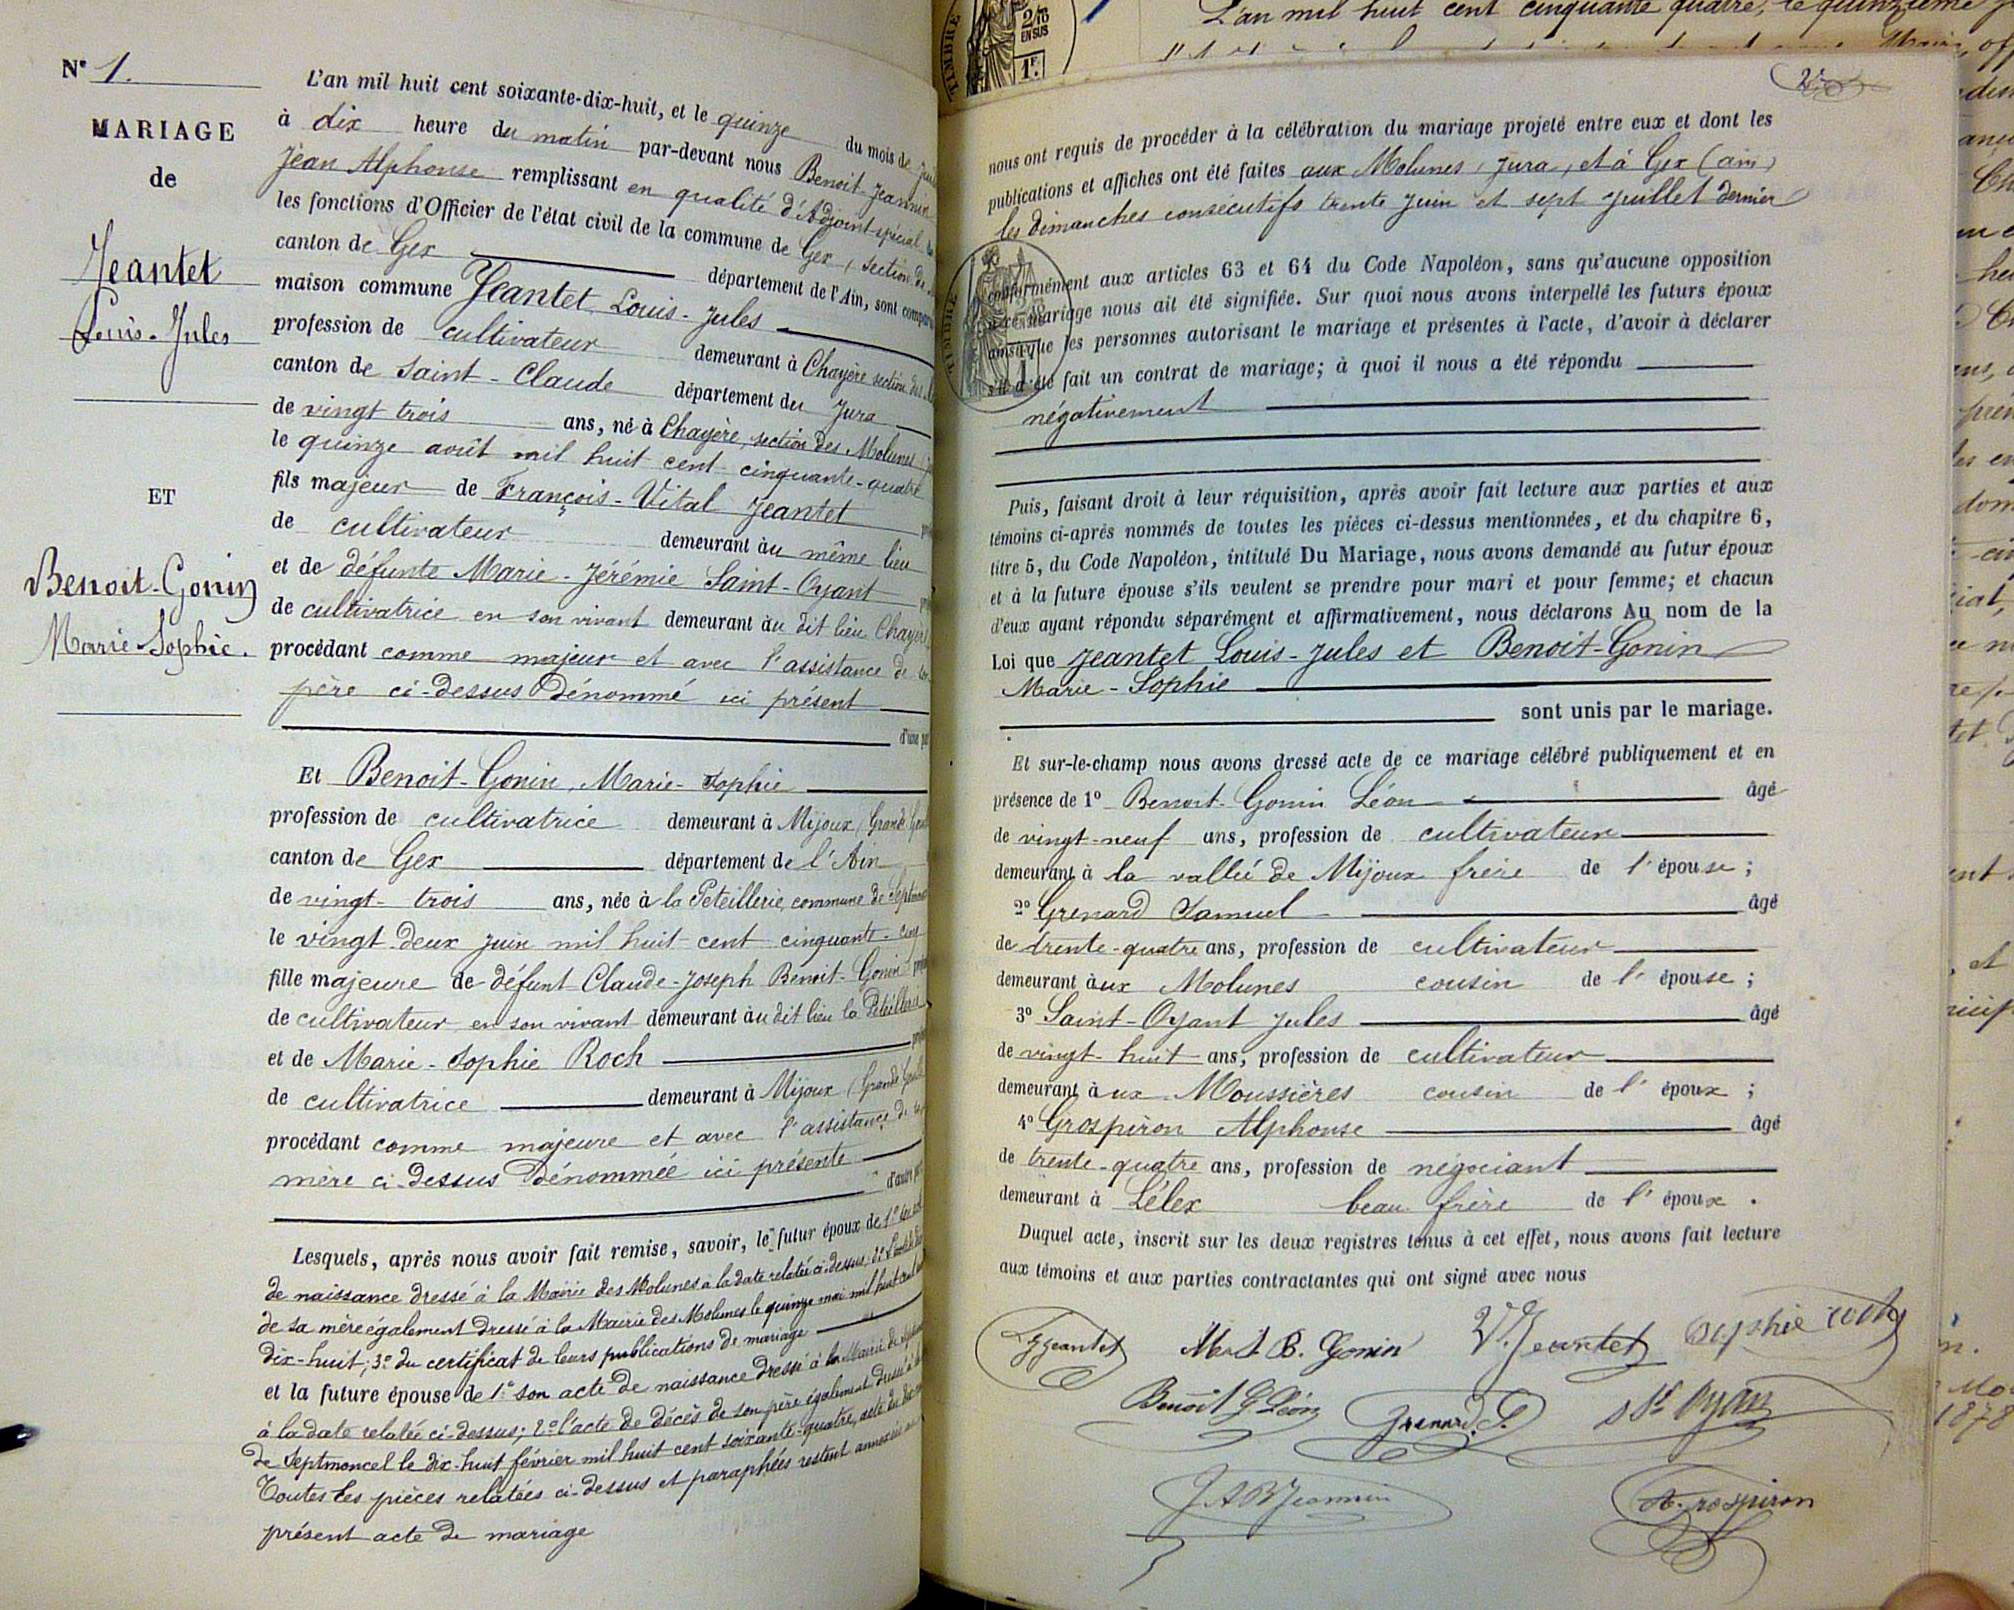 N° 1.
MARIAGE
de
Jeantet
Louis-Jules
ET
Benoit-Gonin
Marie Sophie.
L'an mil huit cent soixante-dix-huit, et le quinze du mois de
à dix heure du matin par-devant nous Benoit-Jeannin
Jean Alphonse remplissant en qualité d'Adjoint spécial
les fonctions d'Officier de l'état civil de la commune de Gex, section de
canton de Gex département de l'Ain, sont comparu
maison commune Jeantet Louis-Jules
profession de cultivateur demeurant à Chayère section des
canton de Saint-Claude département du Jura
de vingt trois ans, né à Chayère, section des Molunes
le quinze août mil huit cent cinquante-quatre
fils majeur de François-Vital Jeantet
de cultivateur demeurant au même lieu
et de défunte Marie-Jérémie Saint-Oyant
de cultivatrice en son vivant demeurant au dit lieu Chayère
procédant comme majeur et avec l'assistance de son
père ci-dessus dénommé ici présent
d'une part
Et Benoit-Gonin, Marie-Sophie
profession de cultivatrice demeurant à Mijoux, Grande
canton de Gex département de l'Ain
de vingt-trois ans, née à la Peteillerie, commune de Septmoncel
le vingt deux juin mil huit cent cinquante-cinq
fille majeure de défunt Claude-Joseph Benoit-Gonin
de cultivateur en son vivant demeurant au dit lieu la Peteillerie
et de Marie-Sophie Roch
de cultivatrice demeurant à Mijoux (Grande
procédant comme majeure et avec l'assistance de sa
mère ci-dessus dénommée ici présente
d'autre part
Lesquels, après nous avoir fait remise, savoir, le futur époux de 1° son acte
de naissance dressé à la Mairie des Molunes à la date relatée ci-dessus; 2° l'acte de décès
de sa mère également dressé à la Mairie des Molunes le quinze mai mil huit cent
dix-huit; 3° du certificat de leurs publications de mariage
et la future épouse de 1° son acte de naissance dressé à la Mairie de
à la date relatée ci-dessus; 2° l'acte de décès de son père également dressé à
de Septmoncel le dix-huit février mil huit cent soixante-quatre,
Toutes les pièces relatées ci-dessus et paraphées restent annexées au
présent acte de mariage
TIMBRE
2/10
EN SUS
1F.
L'an mil huit cent cinquante quatre, le quinzième
2
nous ont requis de procéder à la célébration du mariage projeté entre eux et dont les
publications et affiches ont été faites aux Molunes, Jura, et à Gex (ain)
les dimanches consécutifs trente juin et sept juillet dernier
conformément aux articles 63 et 64 du Code Napoléon, sans qu'aucune opposition
à ce mariage nous ait été signifiée. Sur quoi nous avons interpellé les futurs époux
ainsi que les personnes autorisant le mariage et présentes à l'acte, d'avoir à déclarer
s'il a été fait un contrat de mariage; à quoi il nous a été répondu
négativement
Puis, faisant droit à leur réquisition, après avoir fait lecture aux parties et aux
témoins ci-après nommés de toutes les pièces ci-dessus mentionnées, et du chapitre 6,
titre 5, du Code Napoléon, intitulé Du Mariage, nous avons demandé au futur époux
et à la future épouse s'ils veulent se prendre pour mari et pour femme; et chacun
d'eux ayant répondu séparément et affirmativement, nous déclarons Au nom de la
Loi que Jeantet Louis-Jules et Benoit-Gonin
Marie-Sophie
sont unis par le mariage.
Et sur-le-champ nous avons dressé acte de ce mariage célébré publiquement et en
présence de 1° Benoit-Gonin Léon âgé
de vingt-neuf ans, profession de cultivateur
demeurant à la vallée de Mijoux frère de l'épouse;
2° Grenard Samuel âgé
de trente-quatre ans, profession de cultivateur
demeurant aux Molunes cousin de l'épouse;
3° Saint-Oyant Jules âgé
de vingt-huit ans, profession de cultivateur
demeurant aux Moussières cousin de l'époux;
4° Grospiron Alphonse âgé
de trente-quatre ans, profession de négociant
demeurant à Lélex beau frère de l'époux.
Duquel acte, inscrit sur les deux registres tenus à cet effet, nous avons fait lecture
aux témoins et aux parties contractantes qui ont signé avec nous
Jeantet M. S. B. Gonin V. Jeantet Sophie roch
Benoit G Léon Grenard. S. St Oyan
J A B Jeannin A. Grospiron
1878